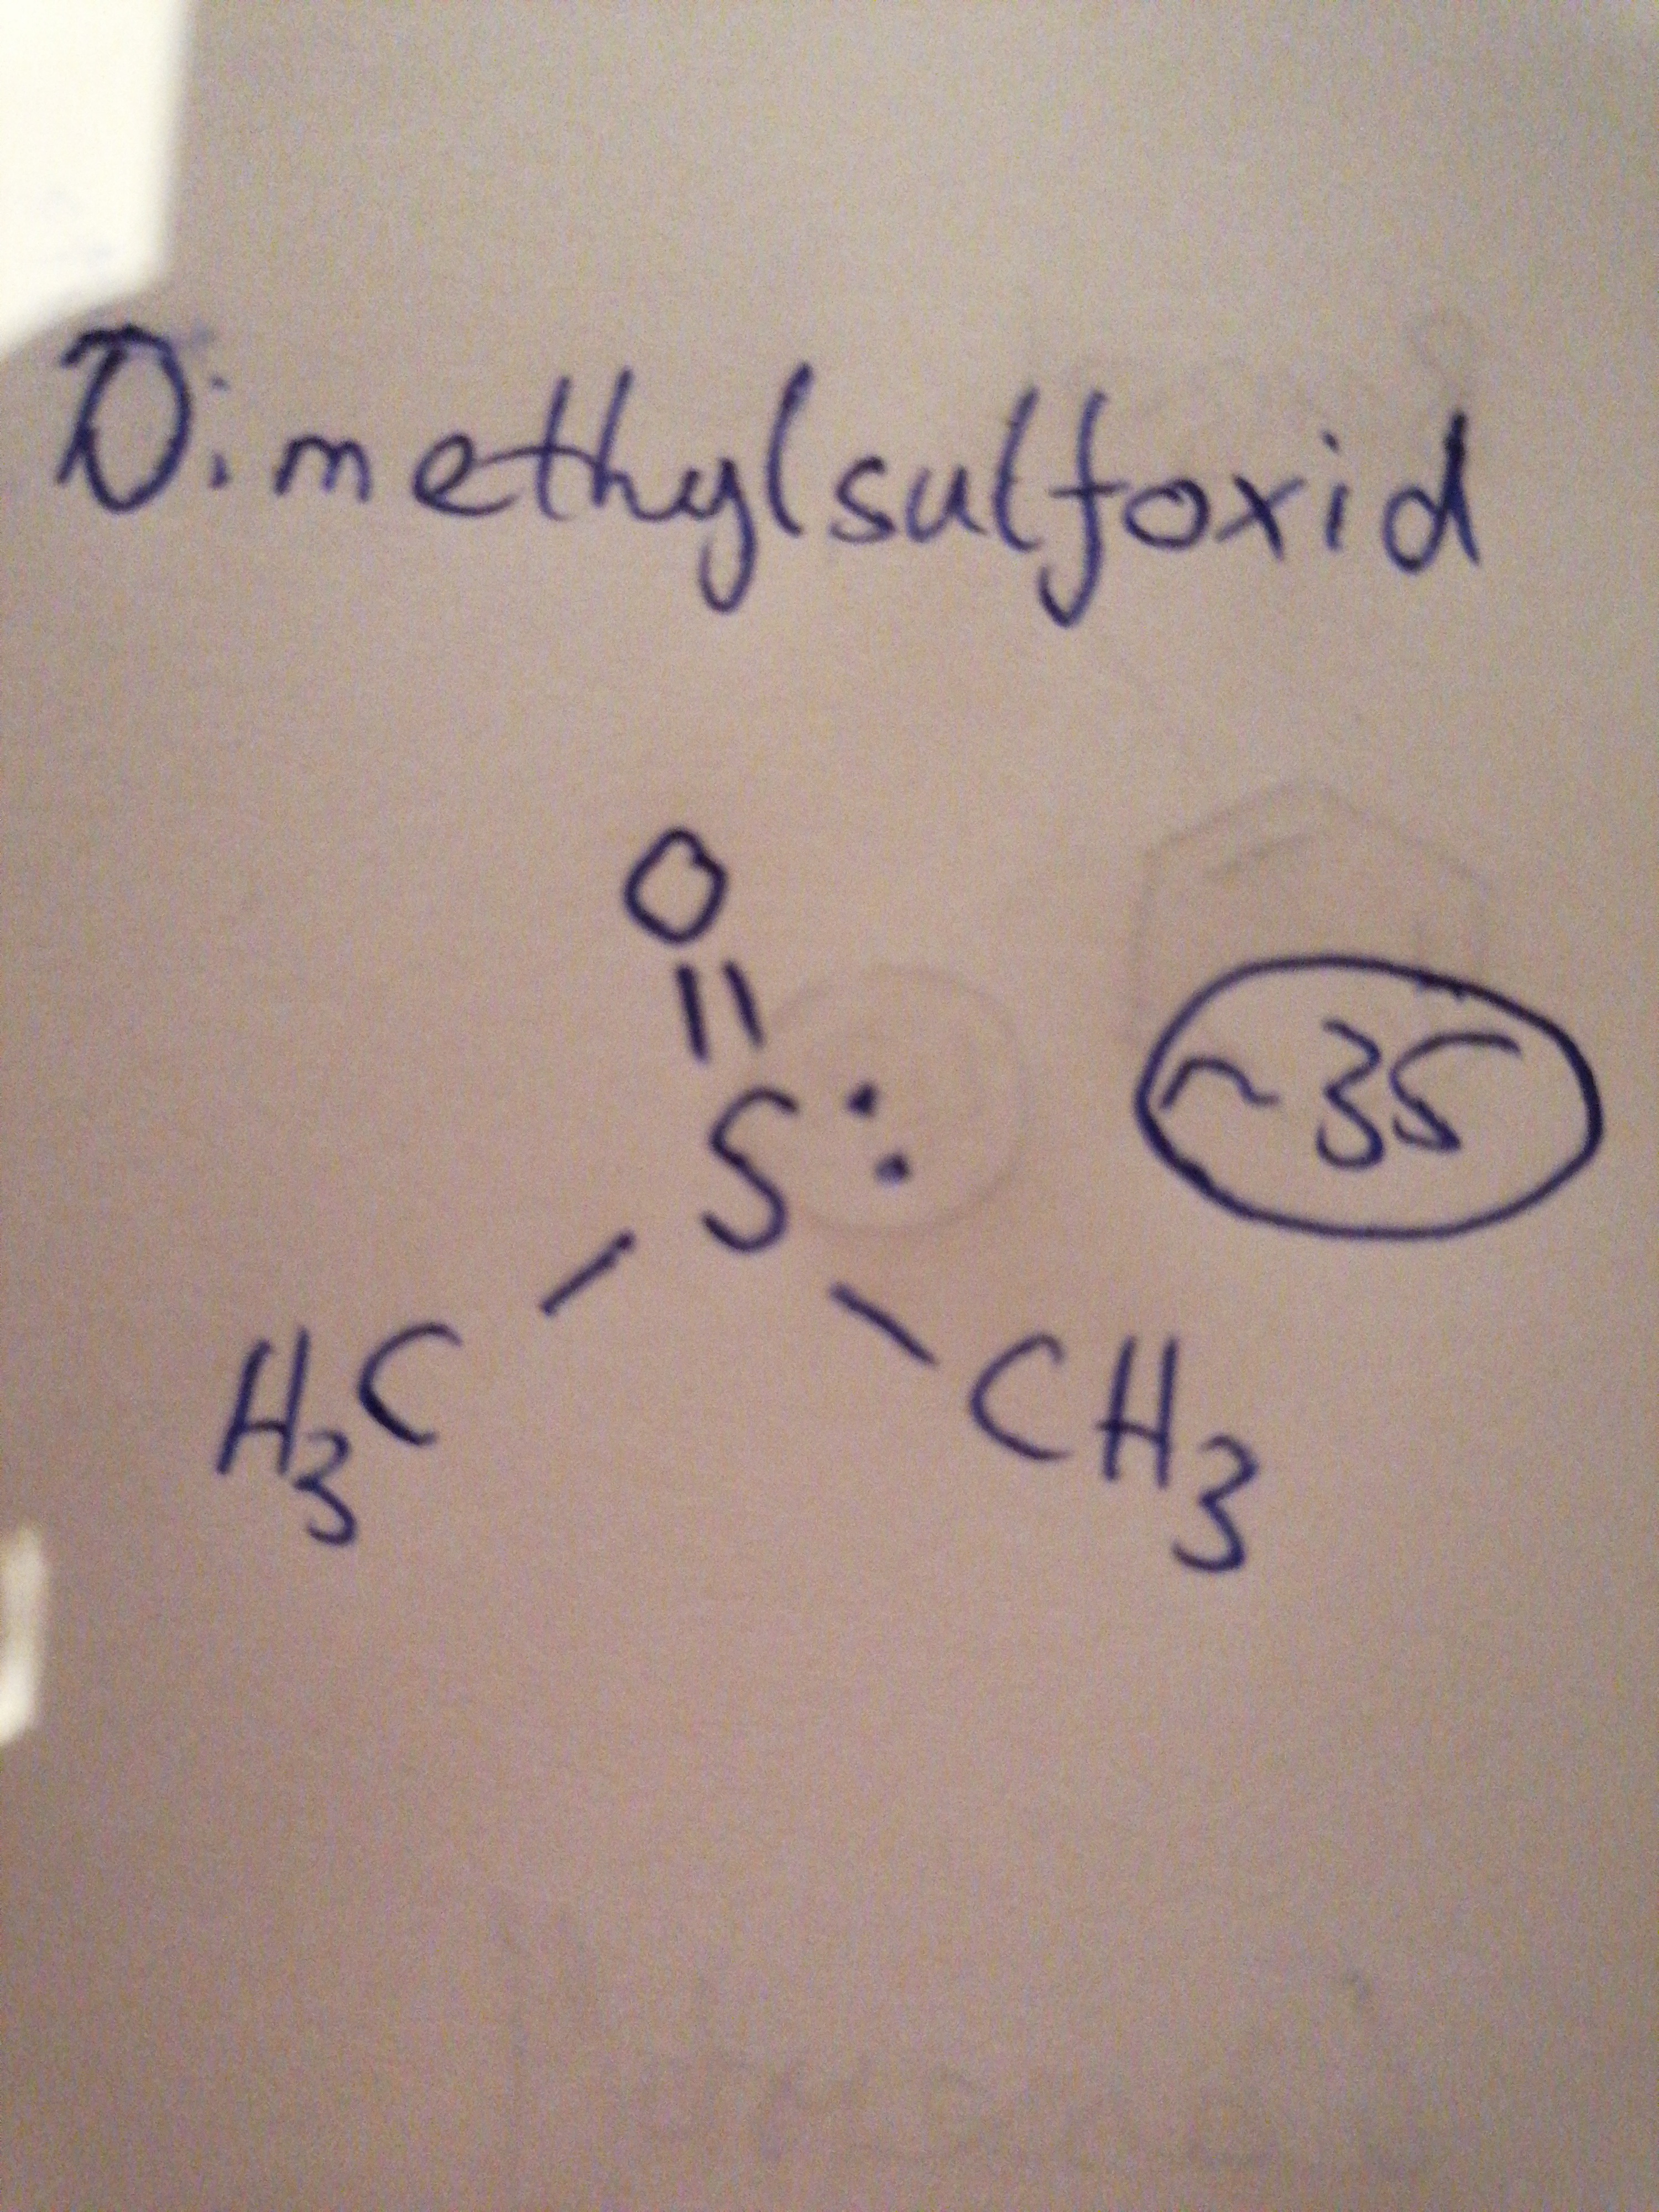 Dimethylsulfoxid
O
S:
~35
H3C
CH3